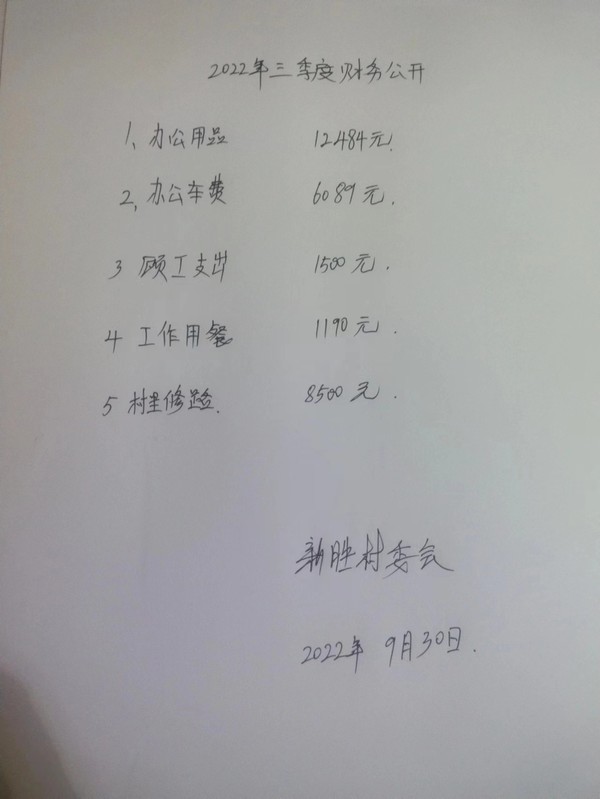 2022年三季度财务公开
1、办公用品 12484元.
2、办公车费 6089元.
3 顾工支出 1500元.
4 工作用餐 1190元.
5 村里修路. 8500元.
新胜村委会
2022年 9月30日.